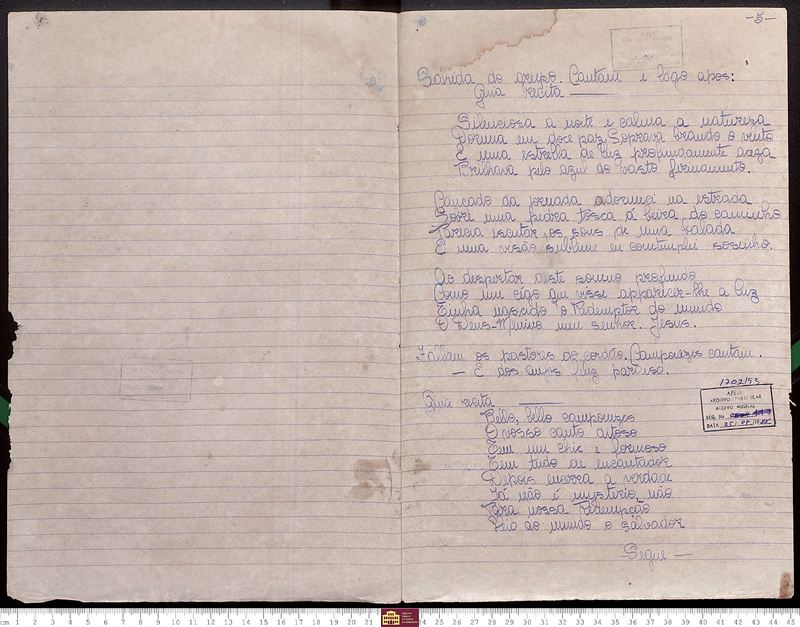 -5-
Sahida do grupo. Cantam e logo após:
Guia recita
Silenciosa a noite e calma a natureza
Dormia em doce paz. Soprava brando o vento
E uma estrella de luz profundamente acesa
Brilhava pelo azul do vasto firmamento.
Cançado da jornada adormeci na estrada
Sobre uma pedra tosca á beira do caminho
Parecia escutar os sons de uma balada
E uma visão sublime eu contemplei sosinho.
Ao despertar deste somno profundo
Como um cégo que visse apparecer-lhe a luz
Tinha nascido o Redemptor do mundo
O Deus-Menino meu senhor. Jesus.
Fallam os pastores do cordão. Camponezes cantam.
— E dos
Guia recita
Bello, bello camponezes
O vosso canto ditoso
Tem um chic e formoso
Tem tudo de encantador
Depois encerra a verdade
Já não é mysterio, não
Para nossa Redempção
Veio ao mundo o salvador
Segue —
1202/53
ARQUIVO PARTICULAR
ACERVO MUSICAL
REG. No.
DATA
cm 1 2 3 4 5 6 7 8 9 10 11 12 13 14 15 16 17 18 19 20 21 24 25 26 27 28 29 30 31 32 33 34 35 36 37 38 39 40 41 42 43 44 45